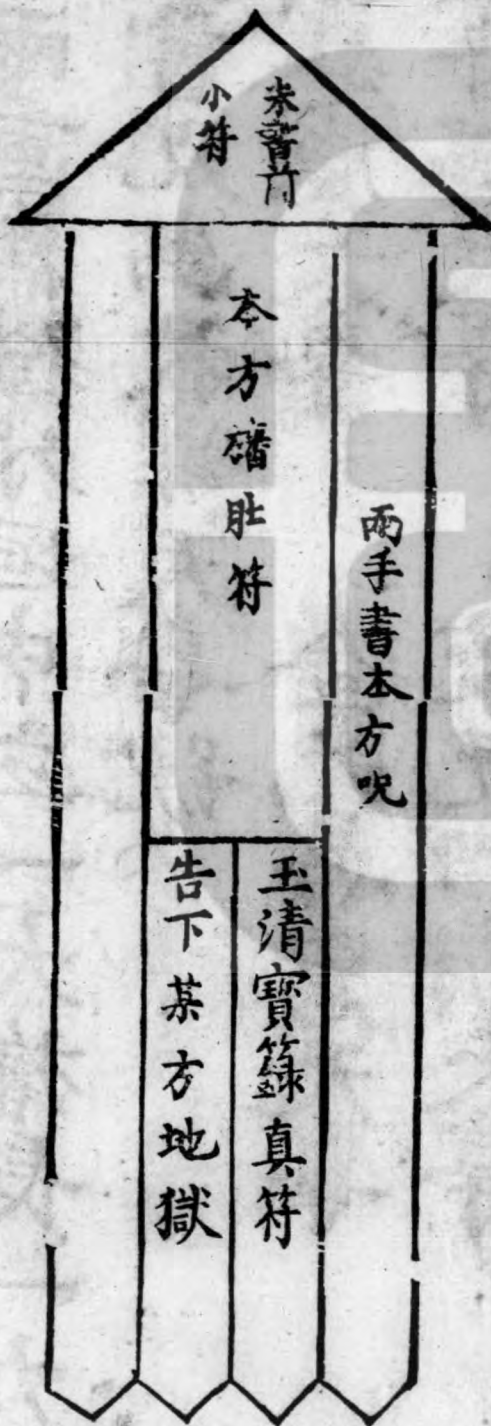 朱書前
小符
兩手書本方呪
本方旛肚符
玉清寶籙真符
告下某方地獄